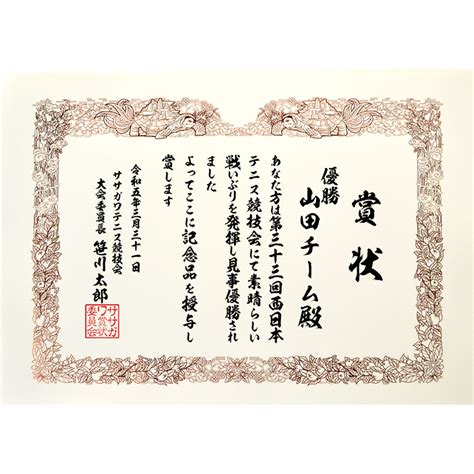 賞状
優勝
山田チーム殿
あなた方は第三十三回西日本
テニス競技会にて素晴らしい
戦いぶりを発揮し見事優勝され
ました
よってここに記念品を授与し
賞します
令和五年三月三十一日
ササガワテニス競技会
大会委員長 笹川太郎
ササガ
ワ賞状
委員会